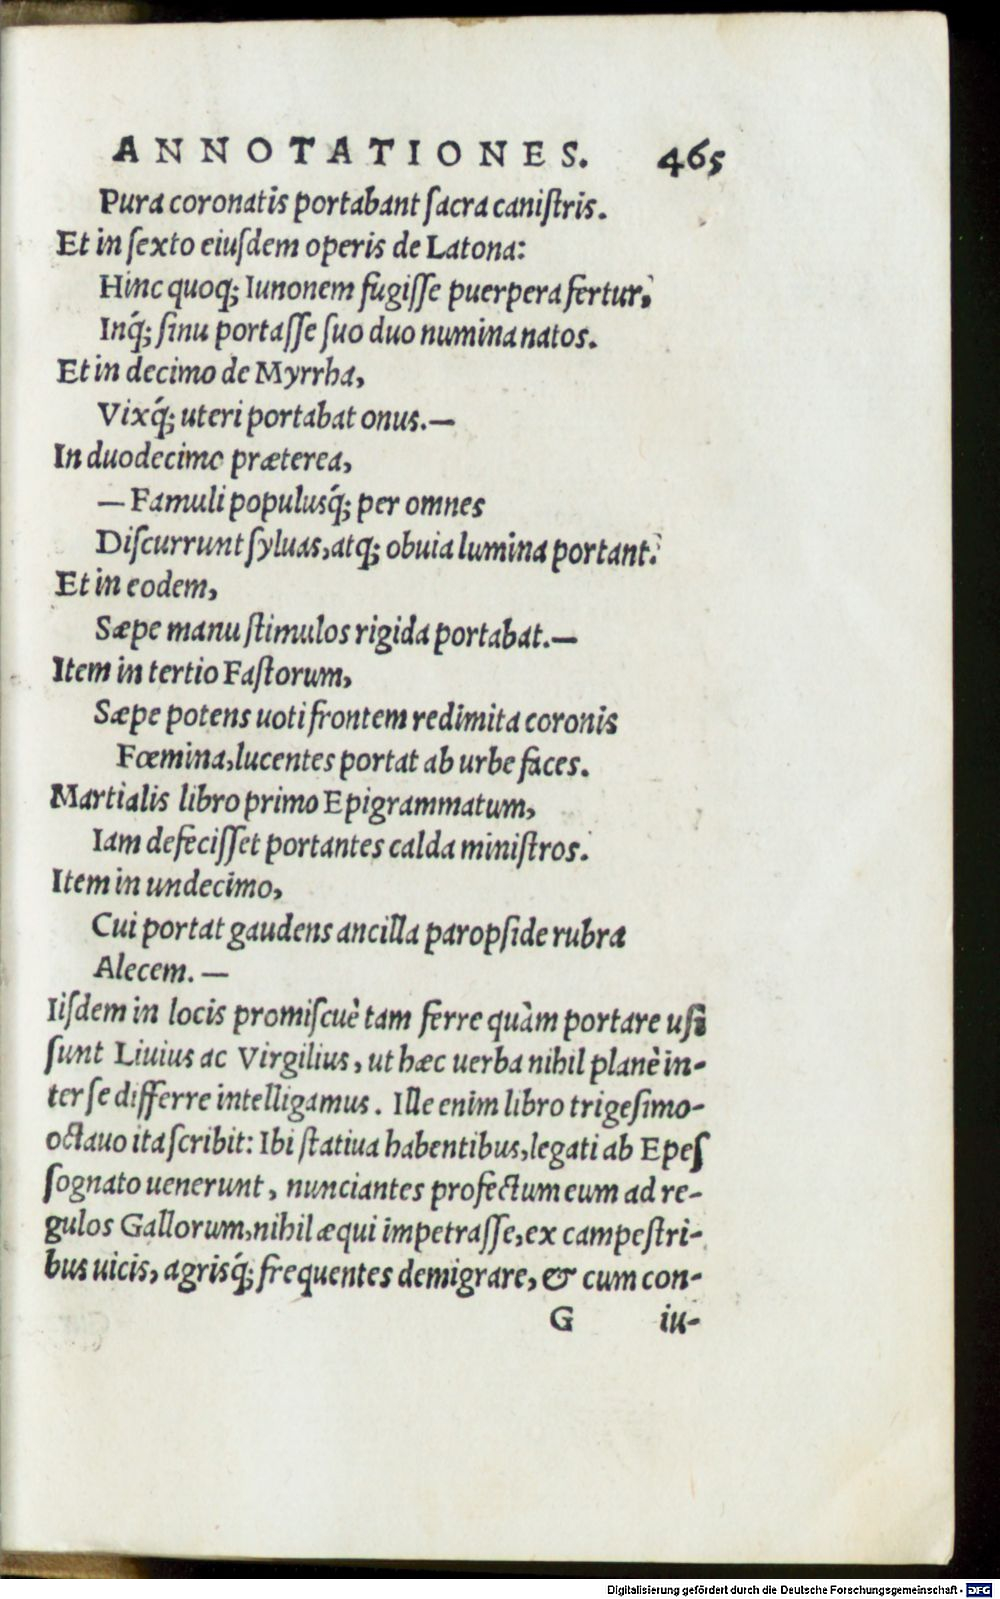 ANNOTATIONES. 465
Pura coronatis portabant ſacra caniſtris.
Et in ſexto eiuſdem operis de Latona:
Hinc quoq; Iunonem fugiſſe puerpera fertur,
Inq́; ſinu portaſſe ſuo duo numina natos.
Et in decimo de Myrrha,
Vixq́; uteri portabat onus.—
In duodecimo præterea,
— Famuli populusq́; per omnes
Diſcurrunt ſyluas, atq; obuia lumina portant.
Et in eodem,
Sæpe manu ſtimulos rigida portabat.—
Item in tertio Faſtorum,
Sæpe potens uoti frontem redimita coronis
Fœmina, lucentes portat ab urbe faces.
Martialis libro primo Epigrammatum,
Iam defeciſſet portantes calda miniſtros.
Item in undecimo,
Cui portat gaudens ancilla paropſide rubra
Alecem. —
Iiſdem in locis promiſcuè tam ferre quàm portare uſi
ſunt Liuius ac Virgilius, ut hæc uerba nihil planè in-
ter ſe differre intelligamus. Ille enim libro trigeſimo-
octauo ita ſcribit: Ibi ſtatiua habentibus, legati ab Epeſ
ſognato uenerunt, nunciantes profectum eum ad re-
gulos Gallorum, nihil æqui impetraſſe, ex campeſtri-
bus uicis, agrisq́; frequentes demigrare, & cum con-
G iu-
Digitalisierung gefördert durch die Deutsche Forschungsgemeinschaft - DFG